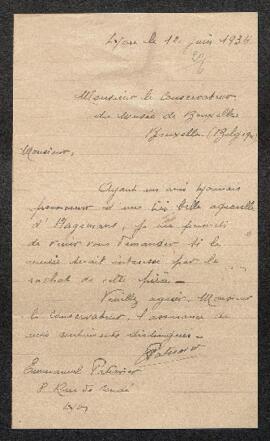 Lyon le 12 juin 1934
Monsieur le Conservateur
du Musée de Bruxelles
Bruxelles (Belgique)
Monsieur,
Ayant un ami lyonnais
possesseur d une très belle aquarelle
d' Hagemans, je me permets
de venir vous demander si le
musée serait intéressé par le
rachat de cette pièce —
Veuillez agréer, Monsieur
le Conservateur, l'assurance de
mes sentiments distingués —
Emmanuel
8 Rue de
Lyon